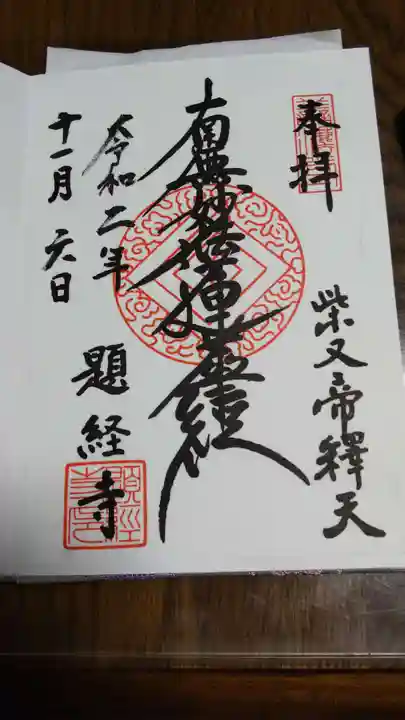 奉拝
柴又帝釋天
南無妙法蓮華経
大令和二年
十一月六日
題経寺